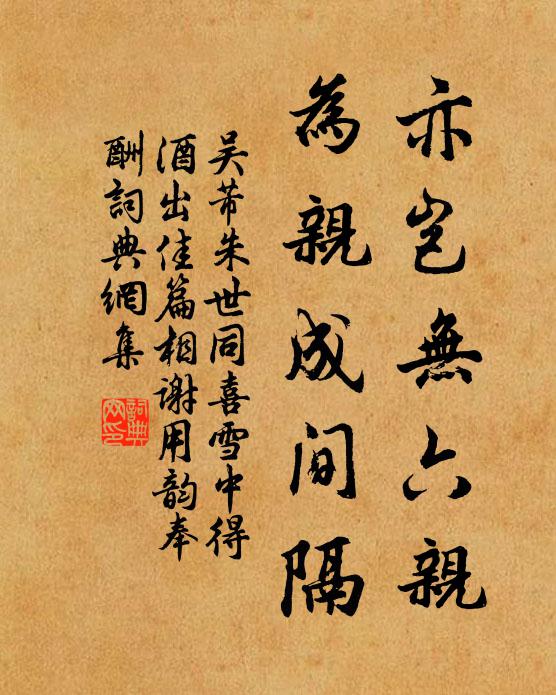 亦豈無六親
為親成间隔
吴芾朱世同喜雪中得
酒出佳篇相谢用韵奉
酬詞典網集
詞典
网印